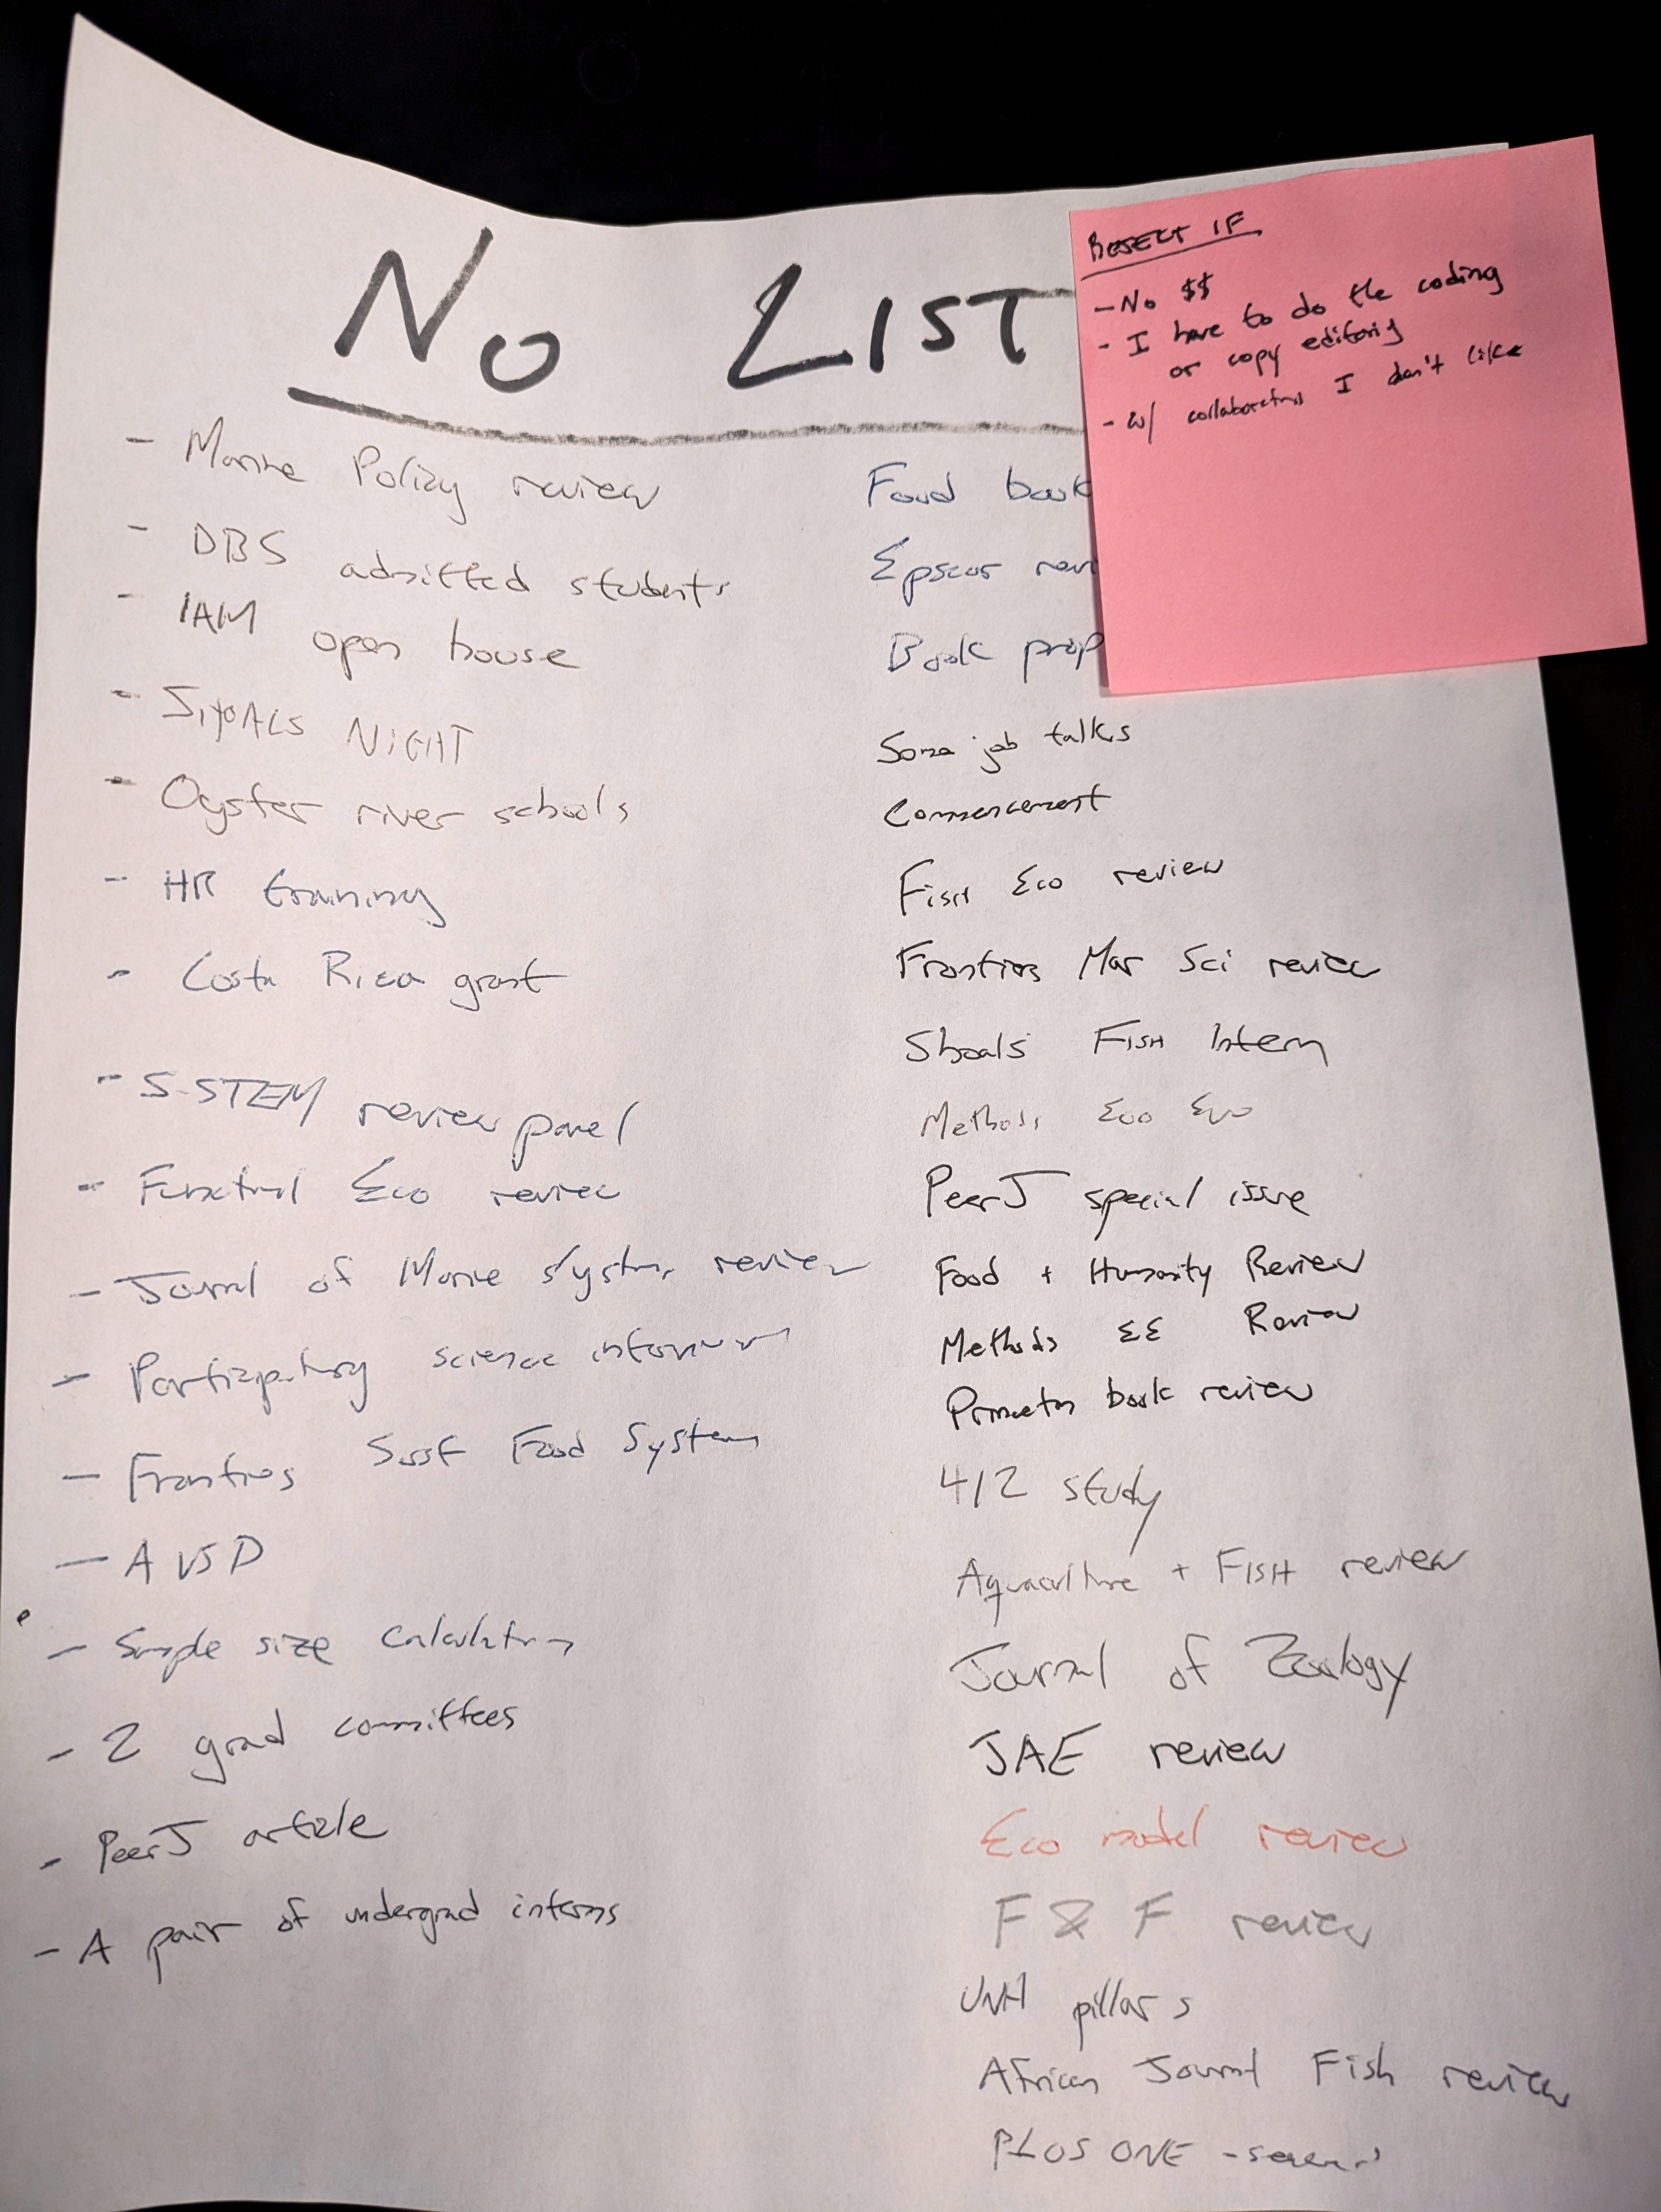 No LIST
- Marine Policy review
- DBS admitted students
- IAM open house
- SHOALS NIGHT
- Oyster river schools
- HR training
- Costa Rica grant
- S-STEM review panel
- Functional Eco review
- Journal of Marine Systems review
- Participatory science
- Frontiers Sust Food Systems
- AVSD
- Sample size calculation
- 2 grad committees
- PeerJ article
- A pair of undergrad interns
Food book
Epscor revi
Book prop
Some job talks
Commencement
FISH Eco review
Frontiers Mar Sci review
Shoals FISH Intern
Methods Eco Evo
PeerJ special issue
Food + Humanity Review
Methods EE Review
Princeton book review
412 study
Aquaculture + FISH review
Journal of Zoology
JAE review
Eco model review
F & F review
UNH pillars
African Journal Fish review
PLOS ONE - several
REJECT IF
- No $$
- I have to do the coding
or copy editing
- w/ collaborators I don't like